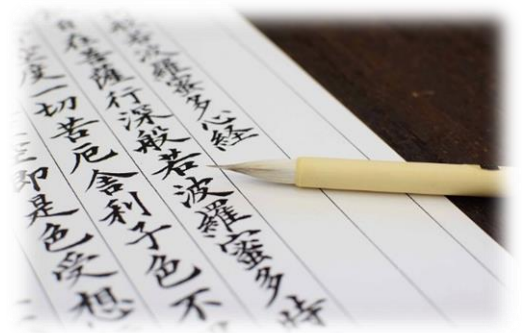 般若波羅蜜多心経
自在菩薩行深般若波羅蜜多時
空度一切苦厄舎利子色不
空即是色受想